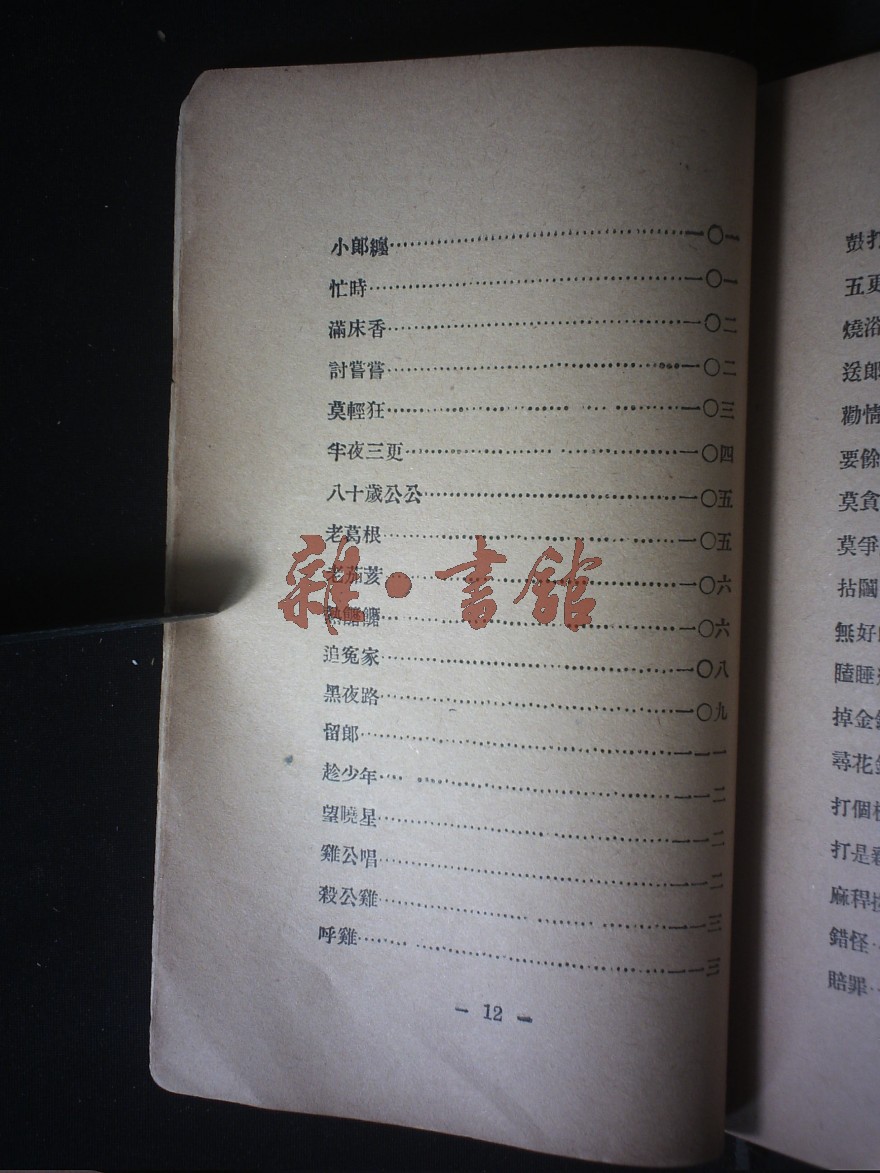 小郎纏……一〇一
忙時……一〇一
滿床香……一〇二
討嘗嘗……一〇二
莫輕狂……一〇三
半夜三更……一〇四
八十歲公公……一〇五
老葛根……一〇五
老茄荄……一〇六
熱饝饝……一〇六
追冤家……一〇八
黑夜路……一〇九
留郎……一一一
趁少年……一一二
望曉星……一一二
雞公唱……一一二
殺公雞……一一三
呼雞……一一三
— 12 —
雜·書館
五更
燒浴
送郎
勸情
要
莫貪
莫爭
無好
瞌睡
掉金
尋花
打個
打是
麻稈
錯怪
賠罪